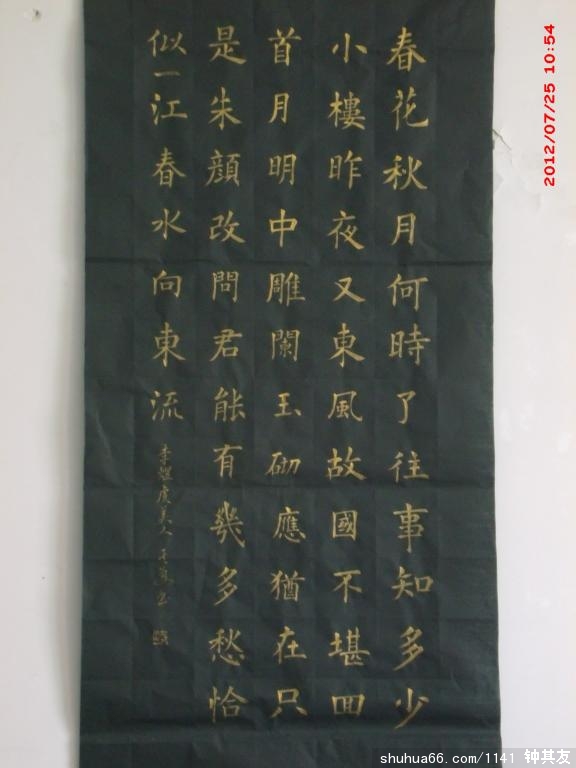 春花秋月何時了往事知多少
小樓昨夜又東風故國不堪回
首月明中雕闌玉砌應猶在只
是朱顔改問君能有幾多愁恰
似一江春水向東流
李煜虞美人
2012/07/25 10:54
shuhua66.com/1141 钟其友